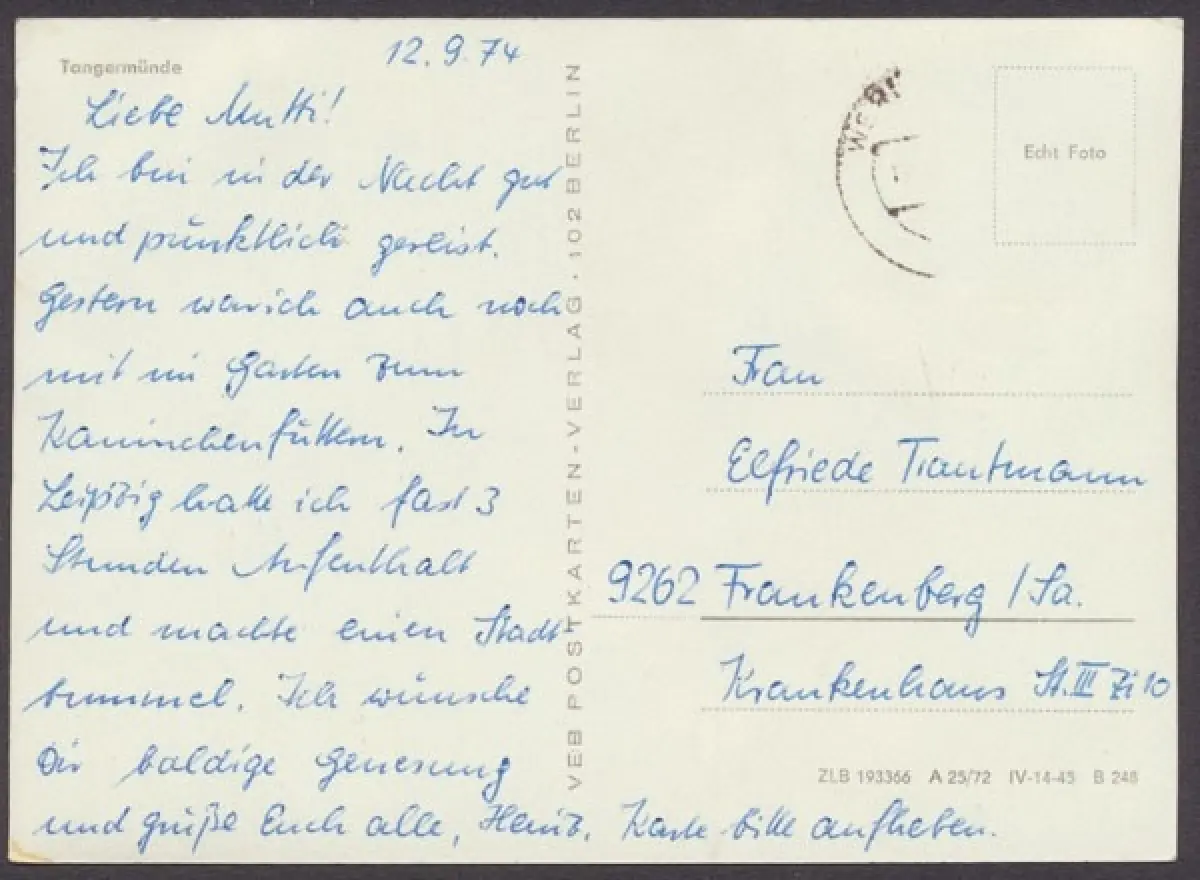 12.9.74
Tangermünde
Liebe Mutti!
Ich bin in der Nacht gut
und pünktlich gereist.
Gestern war ich auch noch
mit im Garten zum
Kaninchenfüttern. In
Leipzig hatte ich fast 3
Stunden Aufenthalt
und machte einen Stadt
bummel. Ich wünsche
Dir baldige Genesung
und grüße Euch alle, Heinz. Karte bitte aufheben.
VEB POSTKARTEN-VERLAG · 102 BERLIN
Echt Foto
Frau
Elfriede Trautmann
9262 Frankenberg / Sa.
Krankenhaus St. III Zi 10
ZLB 193366 A 25/72 IV-14-45 B 248